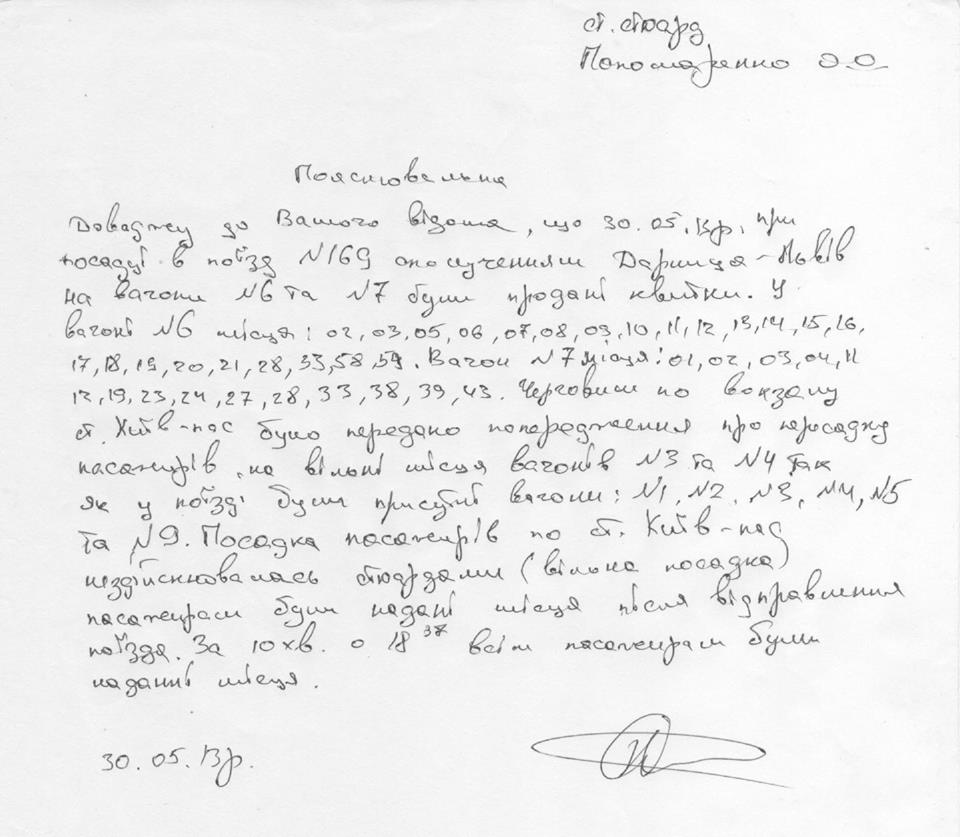 ст. стюард
Пономаренко О.О.
Пояснювальна
Доваджу до Вашого відома, що 30.05.13р. при
посадці в поїзд №169 сполученням Дарниця-Львів
на вагони №6 та №7 були продані квитки. У
вагоні №6 місця: 02,03,05,06,07,08,09,10,11,12,13,14,15,16,
17,18,19,20,21,28,33,58,59. Вагон №7 місця: 01,02,03,04,11
12,19,23,24,27,28,33,38,39,43. Черговим по вокзалу
ст. Київ-пас було передано попередження про пересадку
пасажирів на вільні місця вагонів №3 та №4 так
як у поїзді були присутні вагони: №1, №2, №3, №4, №5
та №9. Посадка пасажирів по ст. Київ-пас
нездійснювалась стюардами (вільна посадка)
пасажирам були надані місця після відправлення
поїзда. За 10хв. о 18 37 всім пасажирам були
наданні місця.
30.05.13р.